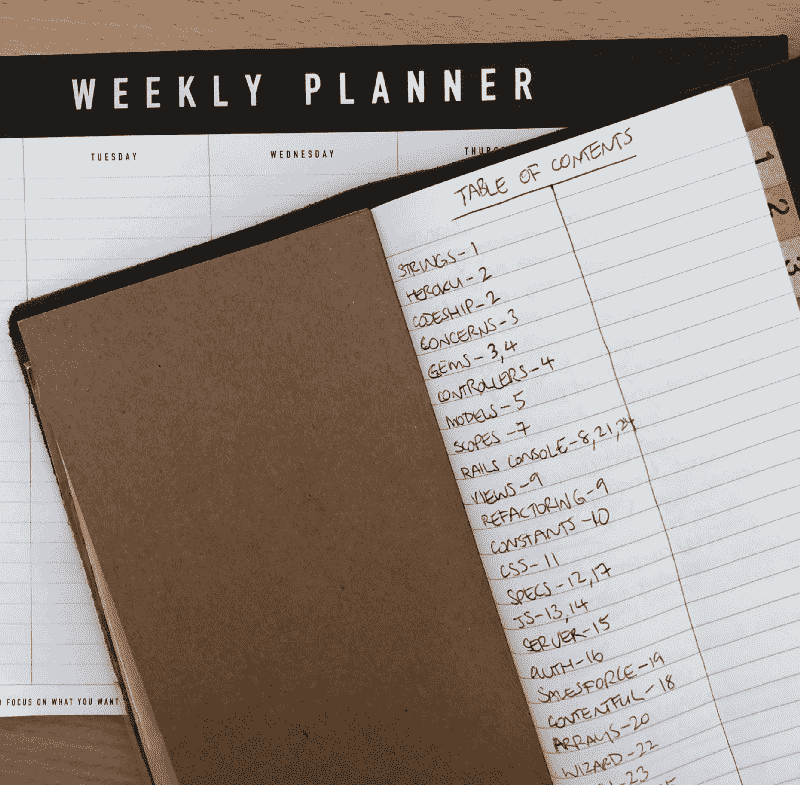 WEEKLY PLANNER
TUESDAY WEDNESDAY
TABLE OF CONTENTS
STRINGS-1
HEROKU-2
CODESHIP-2
CONCERNS-3
GEMS-3,4
CONTROLLERS-4
MODELS-5
SCOPES-7
RAILS CONSOLE-8,21,24
VIEWS-9
REFACTORING-9
CONSTANTS-10
CSS-11
SPECS-12,17
JS-13,14
SERVER-15
AUTH-16
SALESFORCE-19
CONTENTFUL-18
ARRAYS-20
WIZARD-22
-23
1
2
3
FOCUS ON WHAT YOU WANT